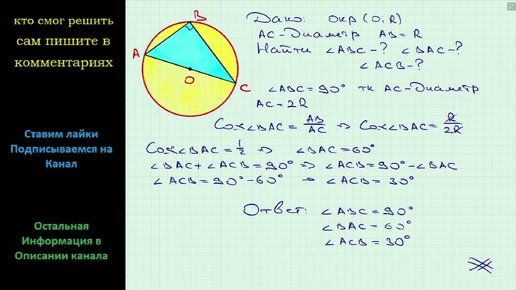 кто смог решить
сам пишите в
комментариях
Ставим лайки
Подписываемся на
Канал
Остальная
Информация в
Описании канала
A
B
C
O
Дано: Окр (O; R)
AC-Диаметр AB=R
Найти ∠ABC-? ∠BAC-?
∠ACB-?
∠ABC=90° тк AC-Диаметр
AC=2R
Cos∠BAC=AB/AC ⇒ Cos∠BAC=R/2R
Cos∠BAC=1/2 ⇒ ∠BAC=60°
∠BAC+∠ACB=90° ⇒ ∠ACB=90°-∠BAC
∠ACB=90°-60° ⇒ ∠ACB=30°
Ответ: ∠ABC=90°
∠BAC=60°
∠ACB=30°